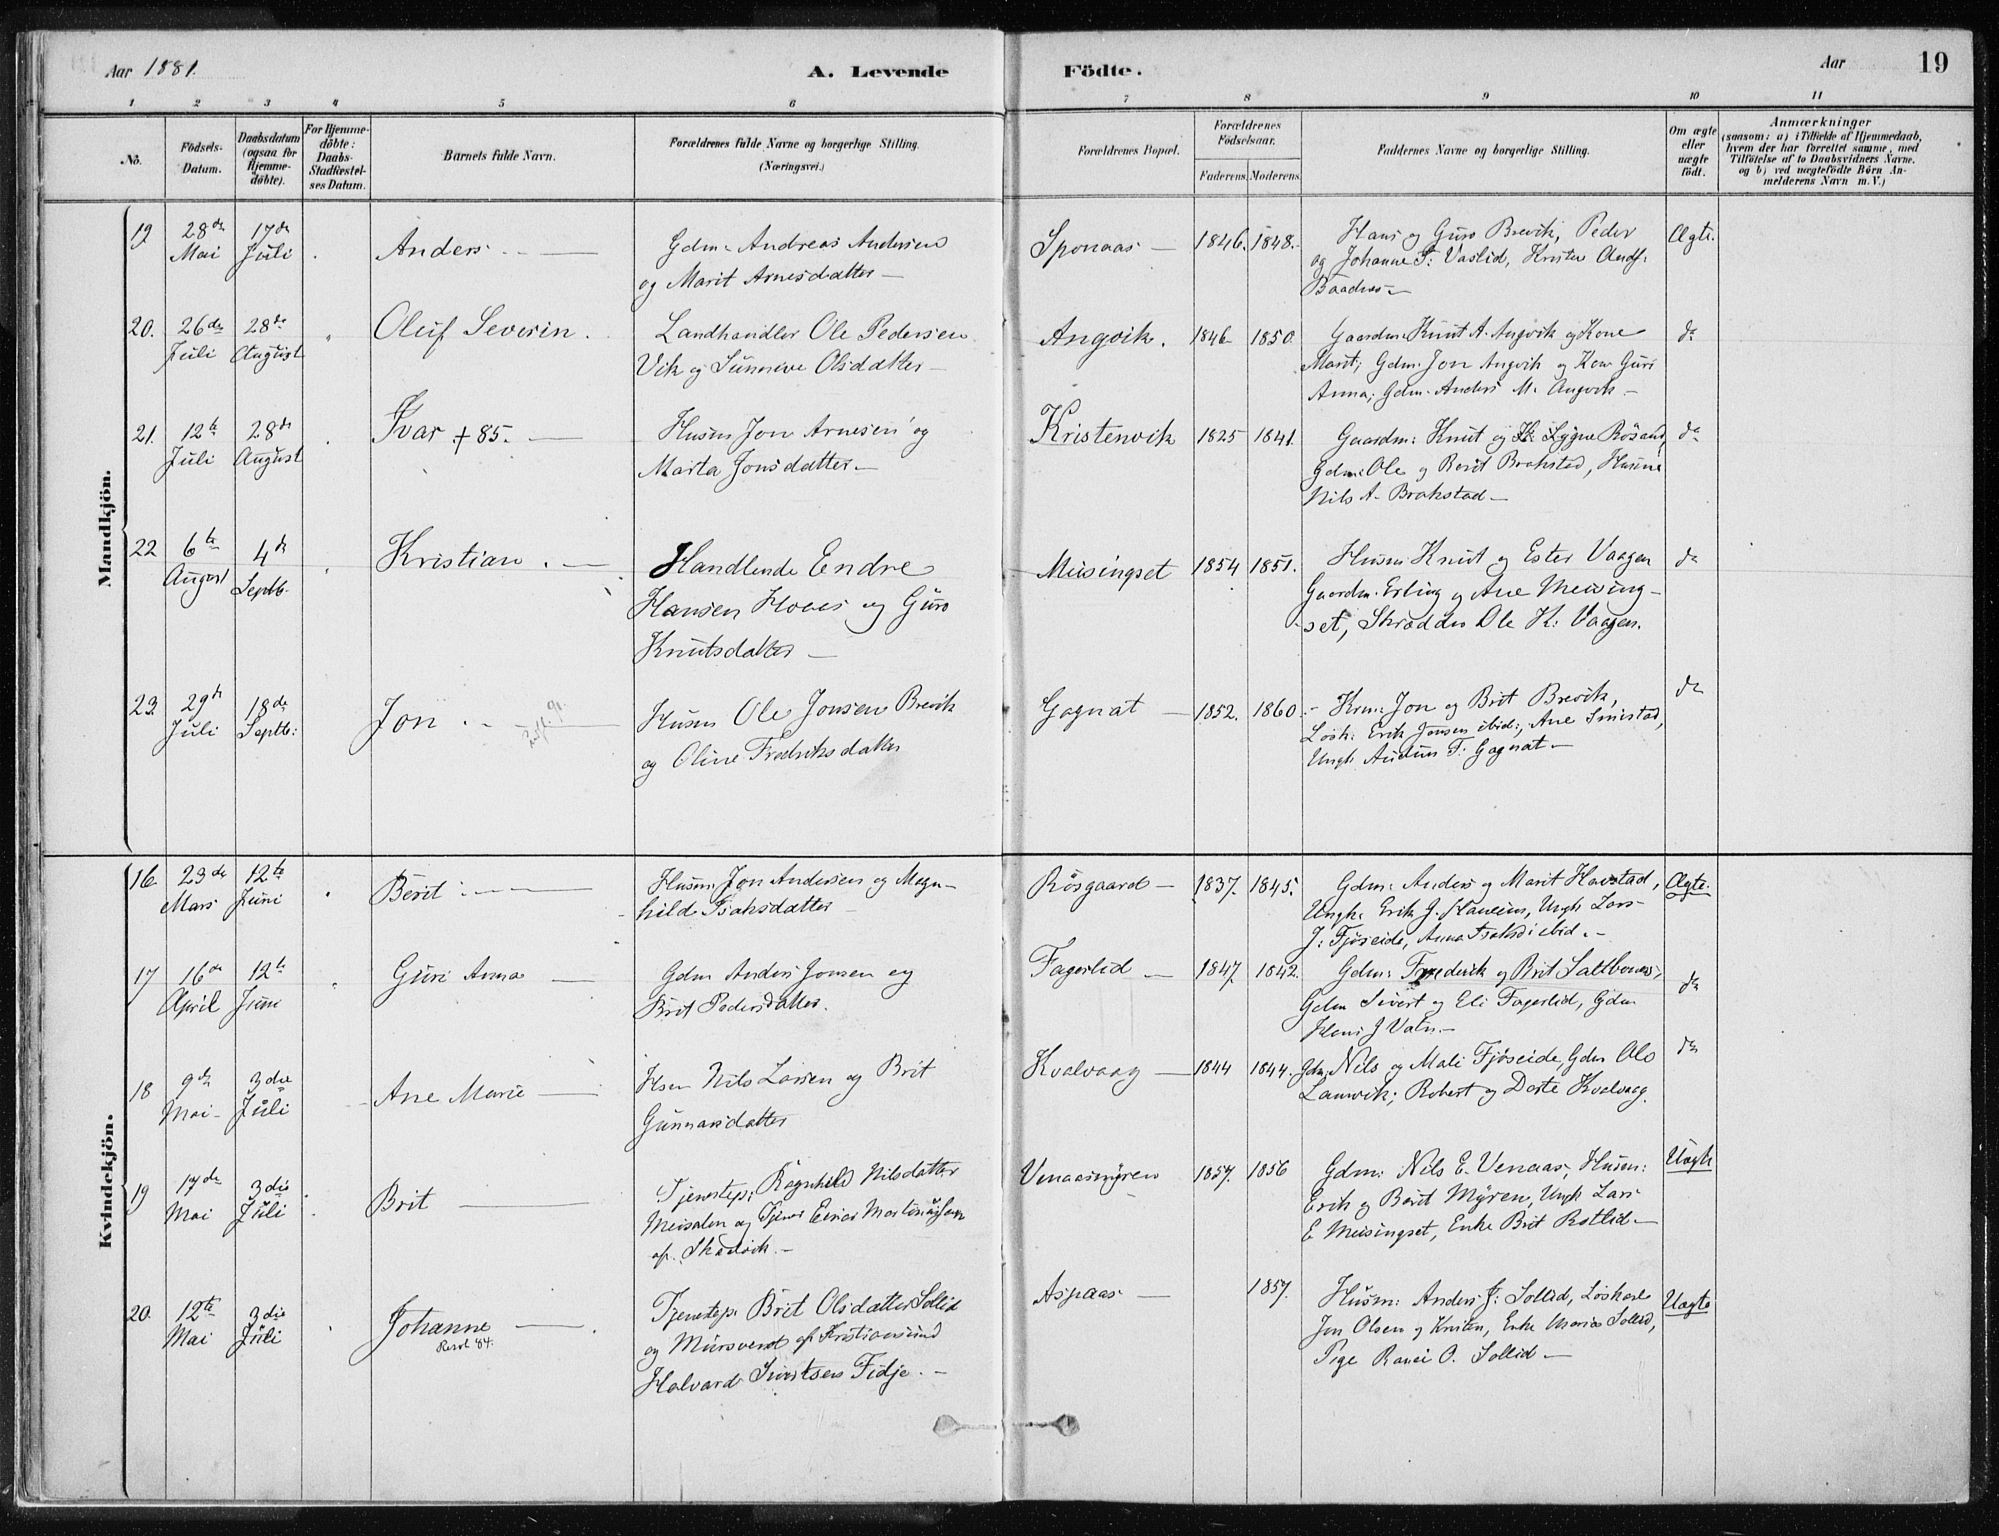 Aar 1881.
A. Levende Födte.
Aar 19
1 2 3 4 5 6 7 8 9 10 11
No.
Födsels-Datum.
Daabsdatum (ogsaa for Hjemme-döbte).
For Hjemme-döbte: Daabs-Stadfæstel-ses Datum.
Barnets fulde Navn.
Forældrenes fulde Navne og borgerlige Stilling.
(Næringsvei.)
Forældrenes Bopæl.
Forældrenes Födselsaar.
Faderens. Moderens.
Faddernes Navne og borgerlige Stilling.
Om ægte eller uægte födt.
Anmærkninger
(saasom: a) i Tilfælde af Hjemmedaab,
hvem der har forrettet samme, med
Tilföielse af to Daabsvidners Navne.
og b) ved uægtefödte Börn An-
melderens Navn m. V.)
Mandkjön.
19 28de Mai 17de Juli Anders
Gdm: Andreas Andersen
og Marit Arnesdatter
Sponaas 1846. 1848.
Hans og Guro Brevik, Peder
og Johanne Vaslid, Kristen
Ægte.
20. 26de Juli 28de August Oluf Severin.
Landhandler Ole Pedersen
Vik og Sunneve Olsdatter
Angvik. 1846 1850.
Gaardm: Knut A. Angvik og Kone
Marit; Gdm: Jon Angvik og Kone Guri
Anna; Gdm: Anders M. Angvik
do
21. 12te Juli 28de August Ivar + 85.
Husm: Jon Arnesen og
Marta Jonsdatter
Kristenvik 1825 1841.
Gaardm: Knut og Lygne Rösand
Gdm: Ole og Berit Brakstad, Husm
Nils A. Brakstad
do
22 6te August 4de Septb. Kristian.
Handlende Endre
Hansen Hoaas og Guro
Knutsdatter
Meisingset 1854 1851.
Husm Knut og Ester Vaagen
Gaardm. Erling og Ane Meising-
set, Skrædder Ole K: Vaagen.
do
23. 29de Juli 18de Septb: Jon
Husm Ole Jonsen Brevik
og Oline Fredriksdatter
Gagnat 1852. 1860.
Jon og Brit Brevik,
Lösk: Erik Jonsen ibid:, Ane
Ungk Audun F: Gagnat
do
Kvindekjön.
16. 23de Mars 12te Juni Berit
Husm: Jon Andersen og Magn-
hild Isaksdatter
Rösgaard 1837. 1845.
Gdm: Anders og Marit Havstad,
Ungk. Erik J. Ungk Lars
J: Fjöseide, Anna ibid.
Ægte.
17 16de April 12te Juni Guri Anna
Gdm Anders Jonsen og
Brit Pedersdatter.
Fagerlid 1847 1842.
Gdm: Frederik og Brit Saltbones,
Gdm Sivert og Eli Fagerlid, Gdm
Hans J Vatn.
do
18 9de Mai 3die Juli Ane Marie
Hsm Nils Larsen og Brit
Gunnarsdatter
Kvalvaag 1844 1844.
Gdm: Nils og Mali Fjöseide, Gdm Ole
Robert og Dorte Kvalvaag.
do
19 17de Mai 3die Juli Brit
Tjenestep: Ragnhild Nilsdatter
Meisalen og Tjener Einar
af.
Venaasmyren 1857. 1856
Gdm: Nils E. Venaas, Husm:
Erik og Berit Myren, Ungk Lars
E Meisingset, Enke Brit Rotlid
Uægte
20. 12te Mai 3die Juli Johanne
84.
Tjenestep: Brit Olsdatter Sollid
og Mursvend af Kristiansund
Halvard Sivertsen Fidje.
Aspaas 1857.
Husm: Anders J: Sollid, Löskarl
Jon Olsen og Kristen, Enke Marie Sollid,
Pige Ranei O. Sollid
Uægte